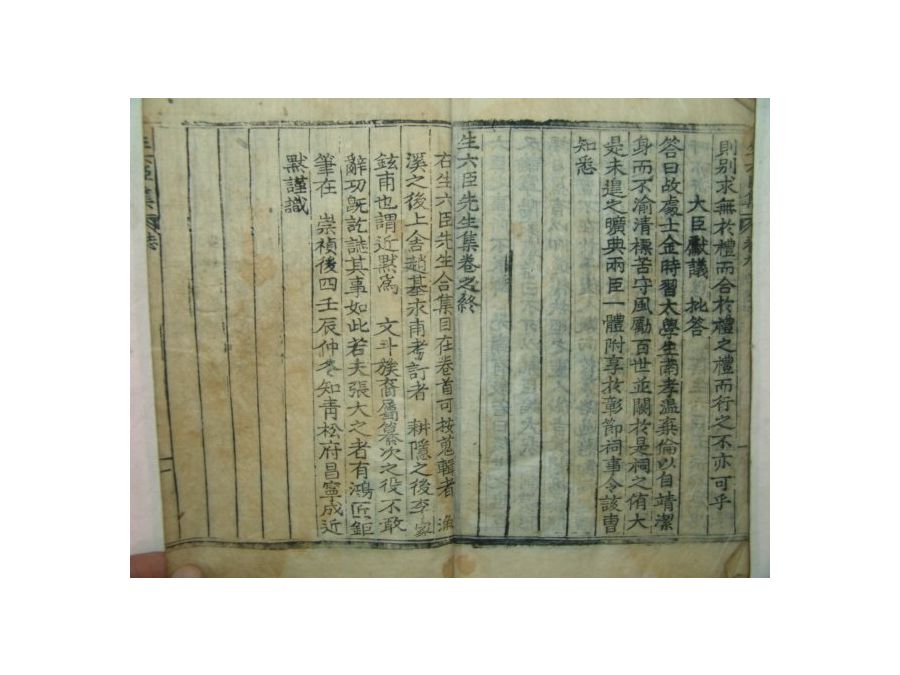 則別求無於禮而合於禮之禮而行之不亦可乎
大臣獻議 批答
答曰故處士金時習太學生南孝溫彛倫以自靖潔
身而不渝清標苦守風勵百世並闕於是祠之侑大
是未遑之曠典兩臣一體附享於彰節祠事令該曹
知悉
生六臣先生集卷之終
右生六臣先生合集目在卷首可按蒐輯者 漁
溪之後上舍趙基永甫考訂者 耕隱之後李家
鉉甫也謂近默爲 文斗族裔屬纂次之役不敢
辭功旣訖誌其事如此若夫張大之者有鴻匠鉅
筆在 崇禎後四壬辰仲冬知靑松府昌寧成近
默謹識
生六臣集